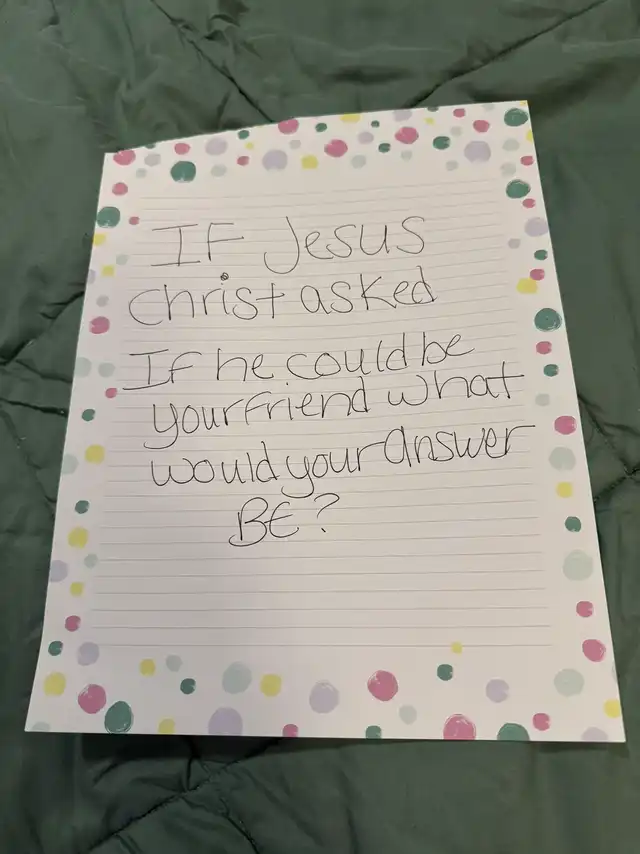 IF Jesus
christ asked
If he could be
your friend what
would your answer
BE?